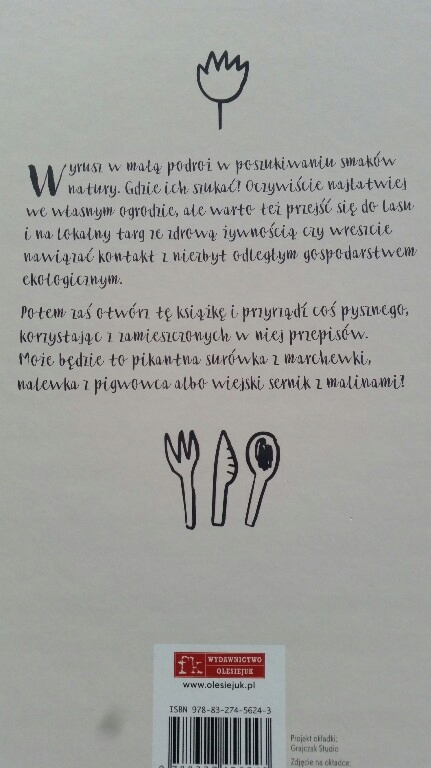 Wyrusz w małą podróż w poszukiwaniu smaków
natury. Gdzie ich szukać? Oczywiście najłatwiej
we własnym ogrodzie, ale warto też przejść się do lasu
i na lokalny targ ze zdrową żywnością czy wreszcie
nawiązać kontakt z niezbyt odległym gospodarstwem
ekologicznym.
Potem zaś otwórz tę książkę i przyrządź coś pysznego,
korzystając z zamieszczonych w niej przepisów.
Może będzie to pikantna surówka z marchewki,
nalewka z pigwowca albo wiejski sernik z malinami?
fk WYDAWNICTWO
OLESIEJUK
www.olesiejuk.pl
ISBN 978-83-274-5624-3
Projekt okładki:
Grajczak Studio
Zdjęcie na okładce: